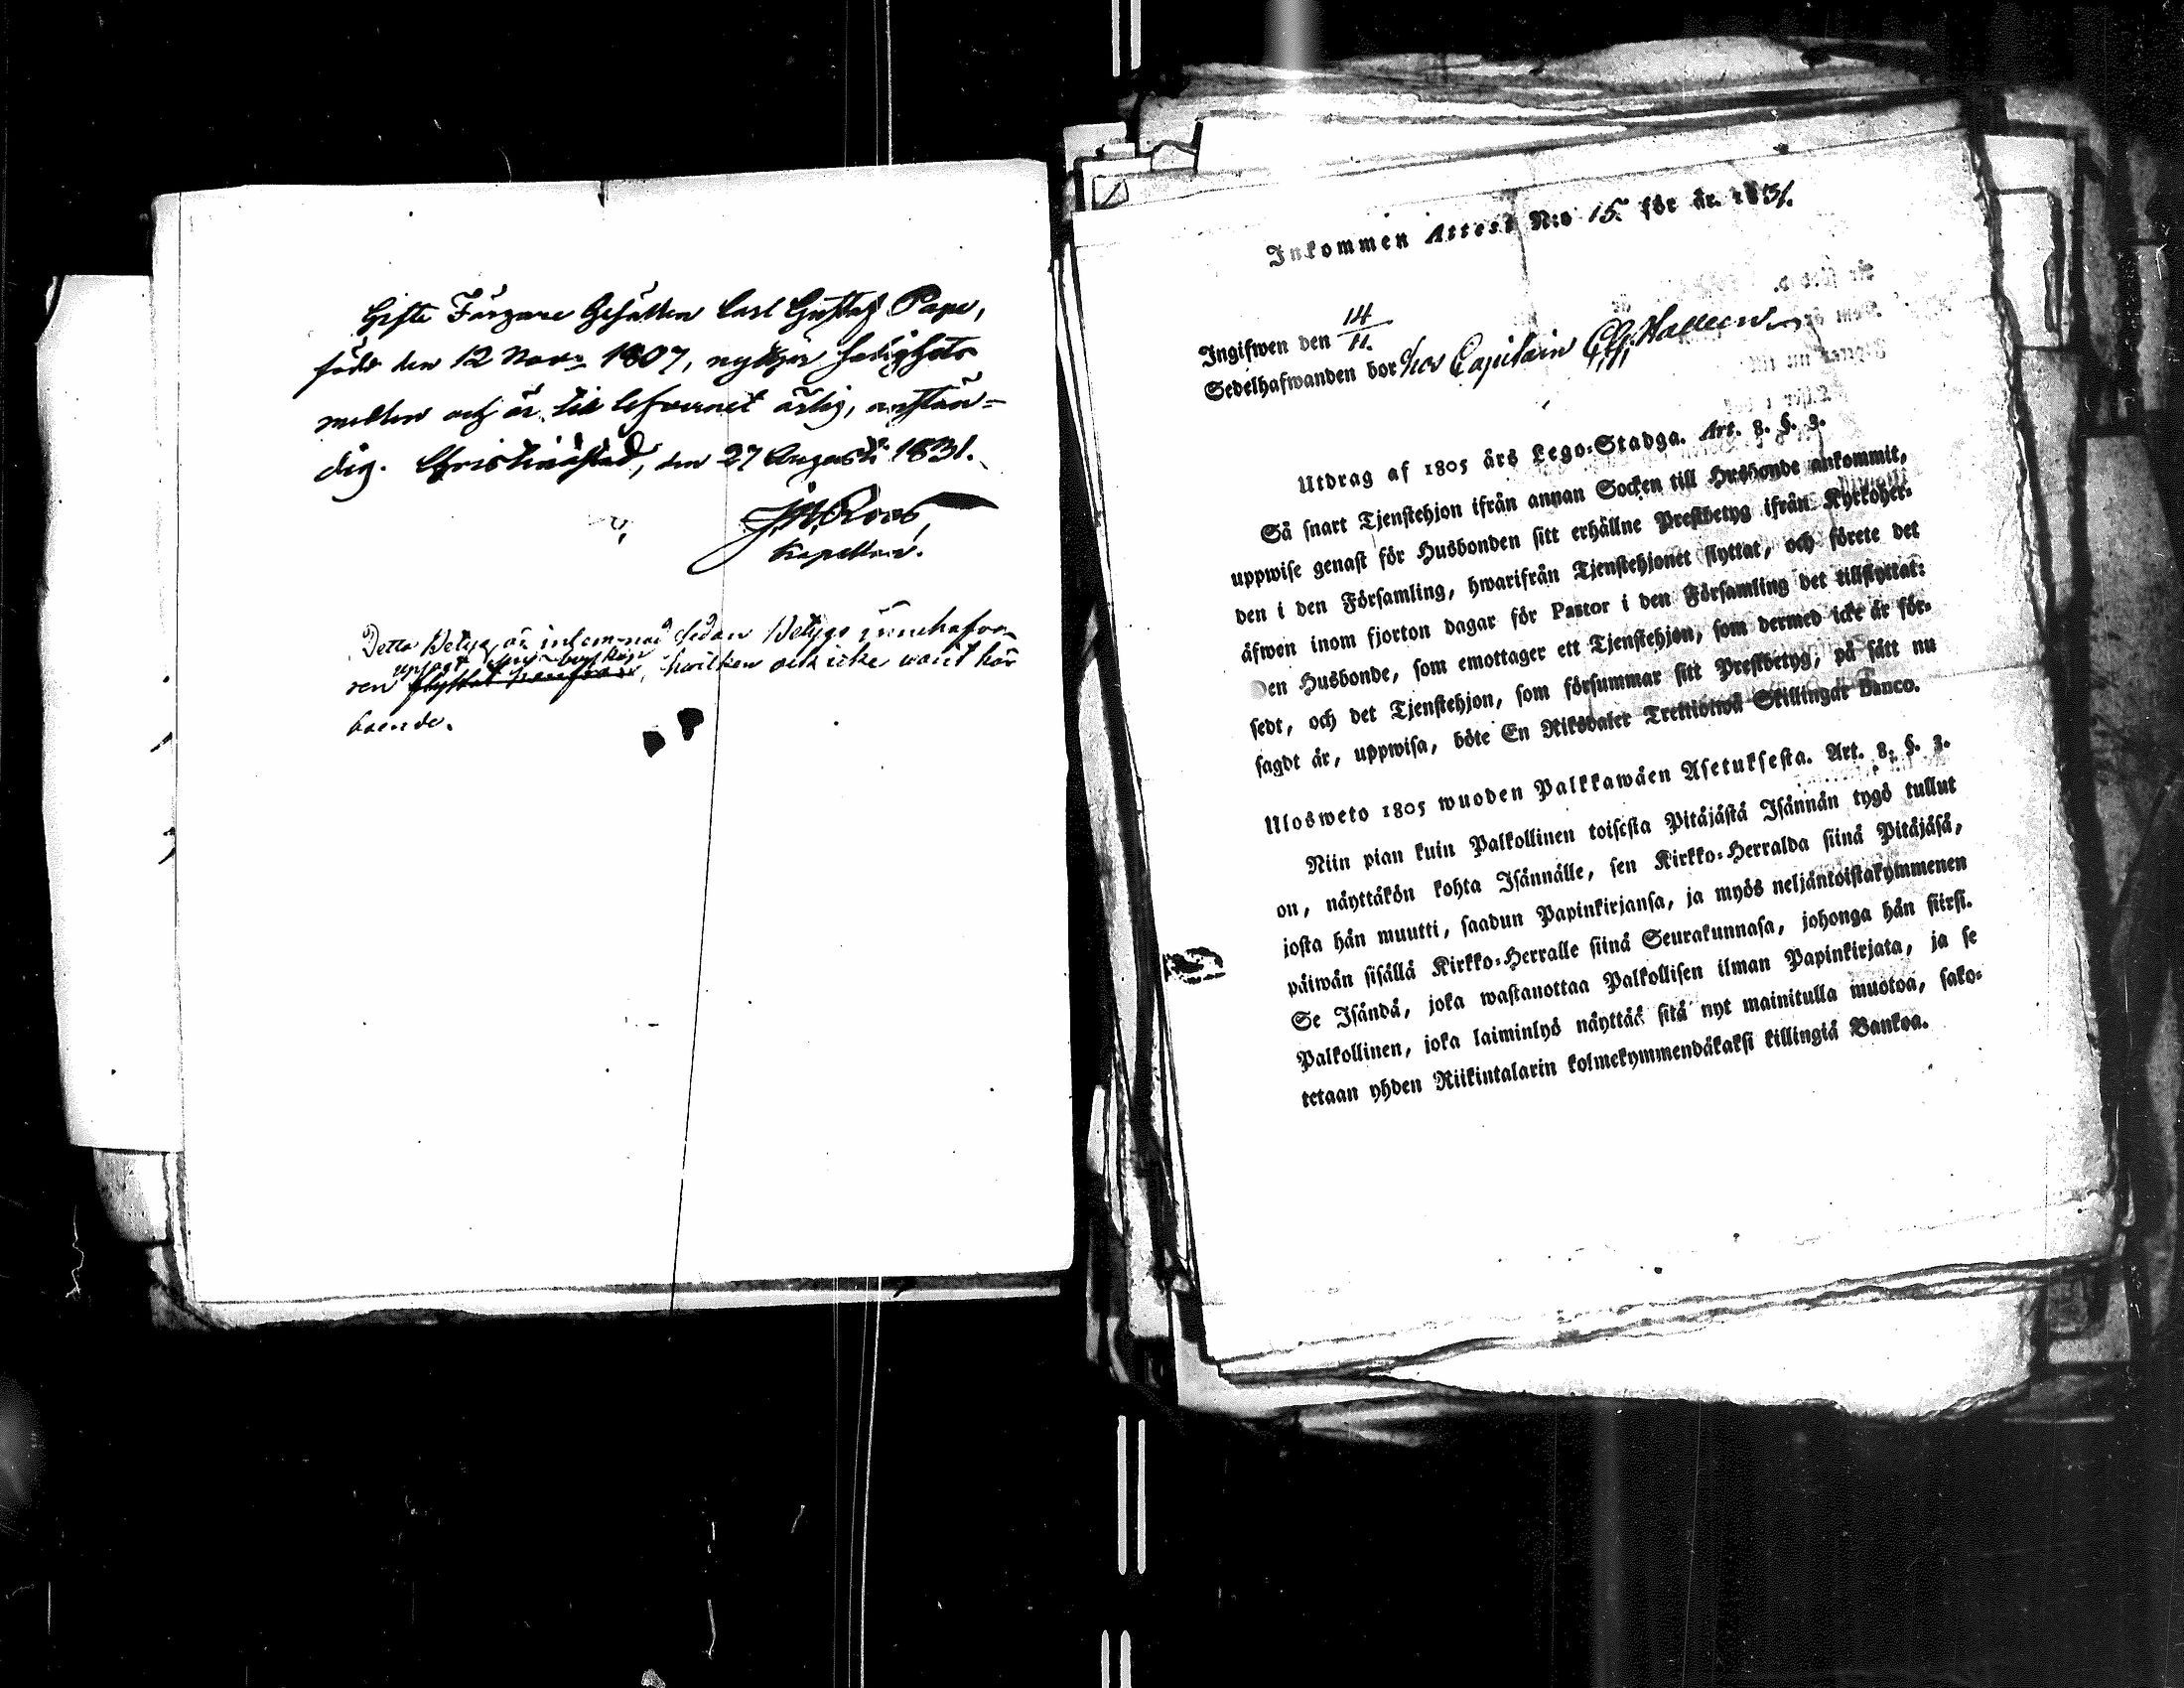 Gifte Färgare Gesällen Carl Gustaf Pape,
född den 12 Nov. 1807, nyttjar salighets
medlen och är till lefvernet ärlig, anstän-
dig. Christinæstad, den 27 Augusti 1831.
Roos,
Kapellan.
Detta Betyg är inlemnad sedan Betygs innehafva-
ren flyttat, hvilken ock icke varit här
boende.
Inkommen Attest N:o 15. för år. 1831.
Ingifwen den 14/11.
Sedelhafwanden bor hos Capitain
Utdrag af 1805 års Lego-Stadga. Art. 8. §. 3.
Så snart Tjenstehjon ifrån annan Socken till Husbonde ankommit,
uppwise genast för Husbonden sitt erhållne Prestbetyg ifrån Kyrkoher-
den i den Församling, hwarifrån Tjenstehjonet flyttat, och förete det
äfwen inom fjorton dagar för Pastor i den Församling det tillflyttat:
Den Husbonde, som emottager ett Tjenstehjon, som dermed icke är för-
sedt, och det Tjenstehjon, som försummar sitt Prestbetyg, på sätt nu
sagdt är, uppwisa, böte En Riksdaler Trettiotwå Skillingar Banco.
Ulosweto 1805 wuoden Palkkawäen Asetuksesta. Art. 8. §. 3.
Niin pian kuin Palkollinen toisesta Pitäjästä Isännän tygö tullut
on, näyttäkön kohta Isännälle, sen Kirkko-Herralda siinä Pitäjäsä,
josta hän muutti, saadun Papinkirjansa, ja myös neljäntoistakymmenen
päiwän sisällä Kirkko-Herralle siinä Seurakunnasa, johonga hän siirsi.
Se Isändä, joka wastanottaa Palkollisen ilman Papinkirjata, ja se
Palkollinen, joka laiminlyö näyttää sitä nyt mainitulla muotoa, sako-
tetaan yhden Riikintalarin kolmekymmendäkaksi killingiä Bankoa.